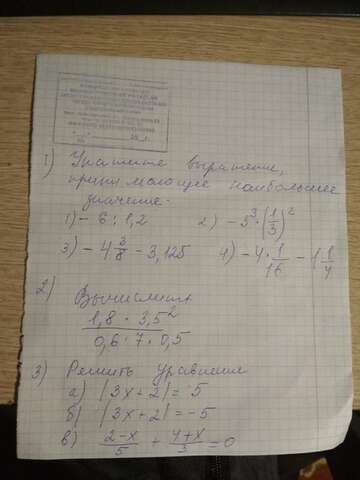 1) Укажите выражение,
принимающее наибольшее
значение.
1) - 6 : 1,2  2) - 3³ · (1/3)²
3) - 4 3/8 - 3,125  4) - 4 · 1/16 - 1 1/4
2) Вычислить
1,8 · 3,5²
0,6 · 7 · 0,5
3) Решить уравнения
а) |3x + 2| = 5
б) |3x + 2| = -5
в) (2-x)/5 + (4+x)/3 = 0